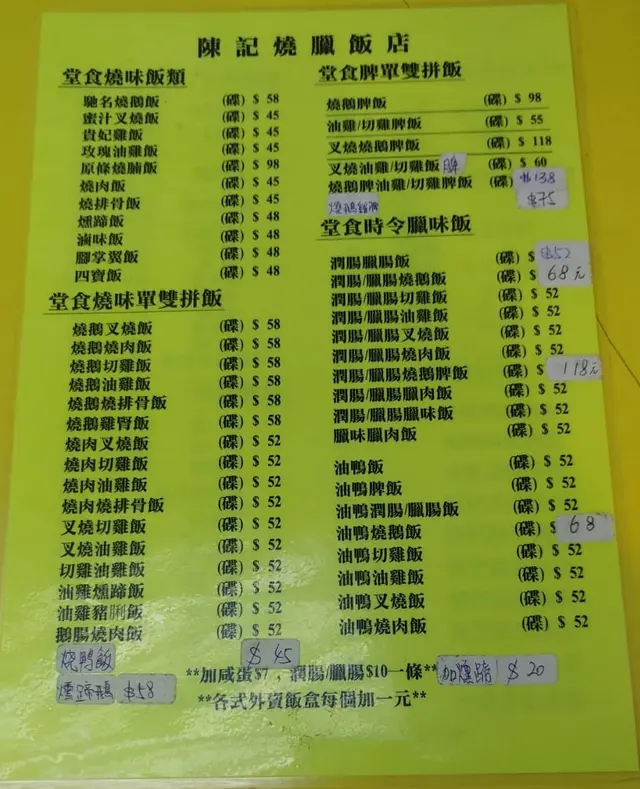 陳記燒臘飯店
堂食燒味飯類
馳名燒鵝飯 (碟) $ 58
蜜汁叉燒飯 (碟) $ 45
貴妃雞飯 (碟) $ 45
玫瑰油雞飯 (碟) $ 45
原條燒腩飯 (碟) $ 98
燒肉飯 (碟) $ 45
燒排骨飯 (碟) $ 45
燻蹄飯 (碟) $ 48
滷味飯 (碟) $ 48
腳掌翼飯 (碟) $ 48
四寶飯 (碟) $ 48
堂食燒味單雙拼飯
燒鵝叉燒飯 (碟) $ 58
燒鵝燒肉飯 (碟) $ 58
燒鵝切雞飯 (碟) $ 58
燒鵝油雞飯 (碟) $ 58
燒鵝燒排骨飯 (碟) $ 58
燒鵝雞腎飯 (碟) $ 58
燒肉叉燒飯 (碟) $ 52
燒肉切雞飯 (碟) $ 52
燒肉油雞飯 (碟) $ 52
燒肉燒排骨飯 (碟) $ 52
叉燒切雞飯 (碟) $ 52
叉燒油雞飯 (碟) $ 52
切雞油雞飯 (碟) $ 52
油雞燻蹄飯 (碟) $ 52
油雞豬脷飯 (碟) $ 52
鵝腸燒肉飯 (碟) $ 52
烧鸭飯 $ 45
燻蹄鵝 $58
堂食脾單雙拼飯
燒鵝脾飯 (碟) $ 98
油雞/切雞脾飯 (碟) $ 55
叉燒燒鵝脾飯 (碟) $ 118
叉燒油雞/切雞飯 脾 (碟) $ 60
燒鵝脾油雞/切雞脾飯 (碟) $138
$75
堂食時令臘味飯
潤腸臘腸飯 (碟) $ $52
潤腸/臘腸燒鵝飯 (碟) $ 68元
潤腸/臘腸切雞飯 (碟) $ 52
潤腸/臘腸油雞飯 (碟) $ 52
潤腸/臘腸叉燒飯 (碟) $ 52
潤腸/臘腸燒肉飯 (碟) $ 52
潤腸/臘腸燒鵝脾飯 (碟) $ 118元
潤腸/臘腸臘肉飯 (碟) $ 52
潤腸/臘腸臘味飯 (碟) $ 52
臘味臘肉飯 (碟) $ 52
油鴨飯 (碟) $ 52
油鴨脾飯 (碟) $ 52
油鴨潤腸/臘腸飯 (碟) $ 52
油鴨燒鵝飯 (碟) $ 68
油鴨切雞飯 (碟) $ 52
油鴨油雞飯 (碟) $ 52
油鴨叉燒飯 (碟) $ 52
油鴨燒肉飯 (碟) $ 52
**加咸蛋$7，潤腸/臘腸$10一條** 加燻蹄 $ 20
**各式外賣飯盒每個加一元**